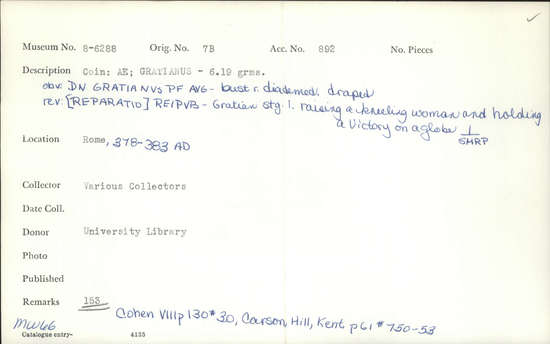 Museum No. 8-6288 Orig. No. 7B Acc. No. 892 No. Pieces
Description Coin; AE; GRATIANUS - 6.19 grms.
obv: DN GRATIANVS PF AVG - bust r. diademed. draped
rev: [REPARATIO] REIPVB - Gratian stg. l. raising a kneeling woman and holding
a Victory on a globe 1/SMRP
Location Rome, 378-383 AD
Collector Various Collectors
Date Coll.
Donor University Library
Photo
Published
Remarks 153
Cohen VIII p 130 #30, Carson, Hill, Kent p 61 # 750-53
MW66
Catalogue entry- 4135